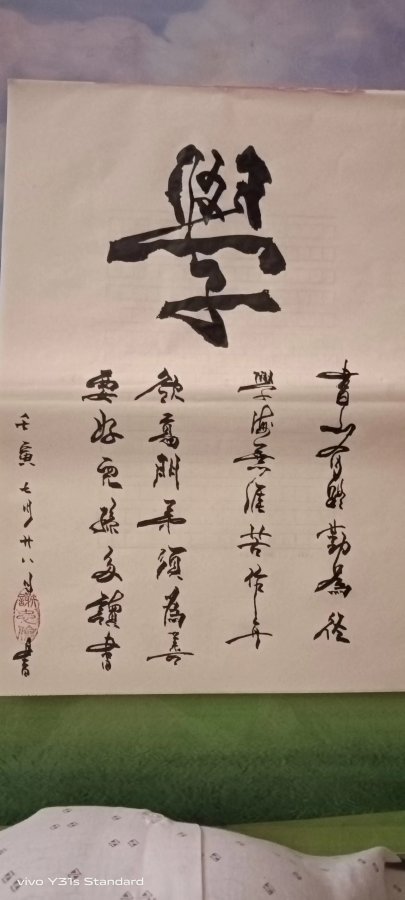 學
書山有路勤為徑
學海無涯苦作舟
欲高門第須為善
要好兒孫多讀書
壬寅七月廿八日書
vivo Y31s Standard